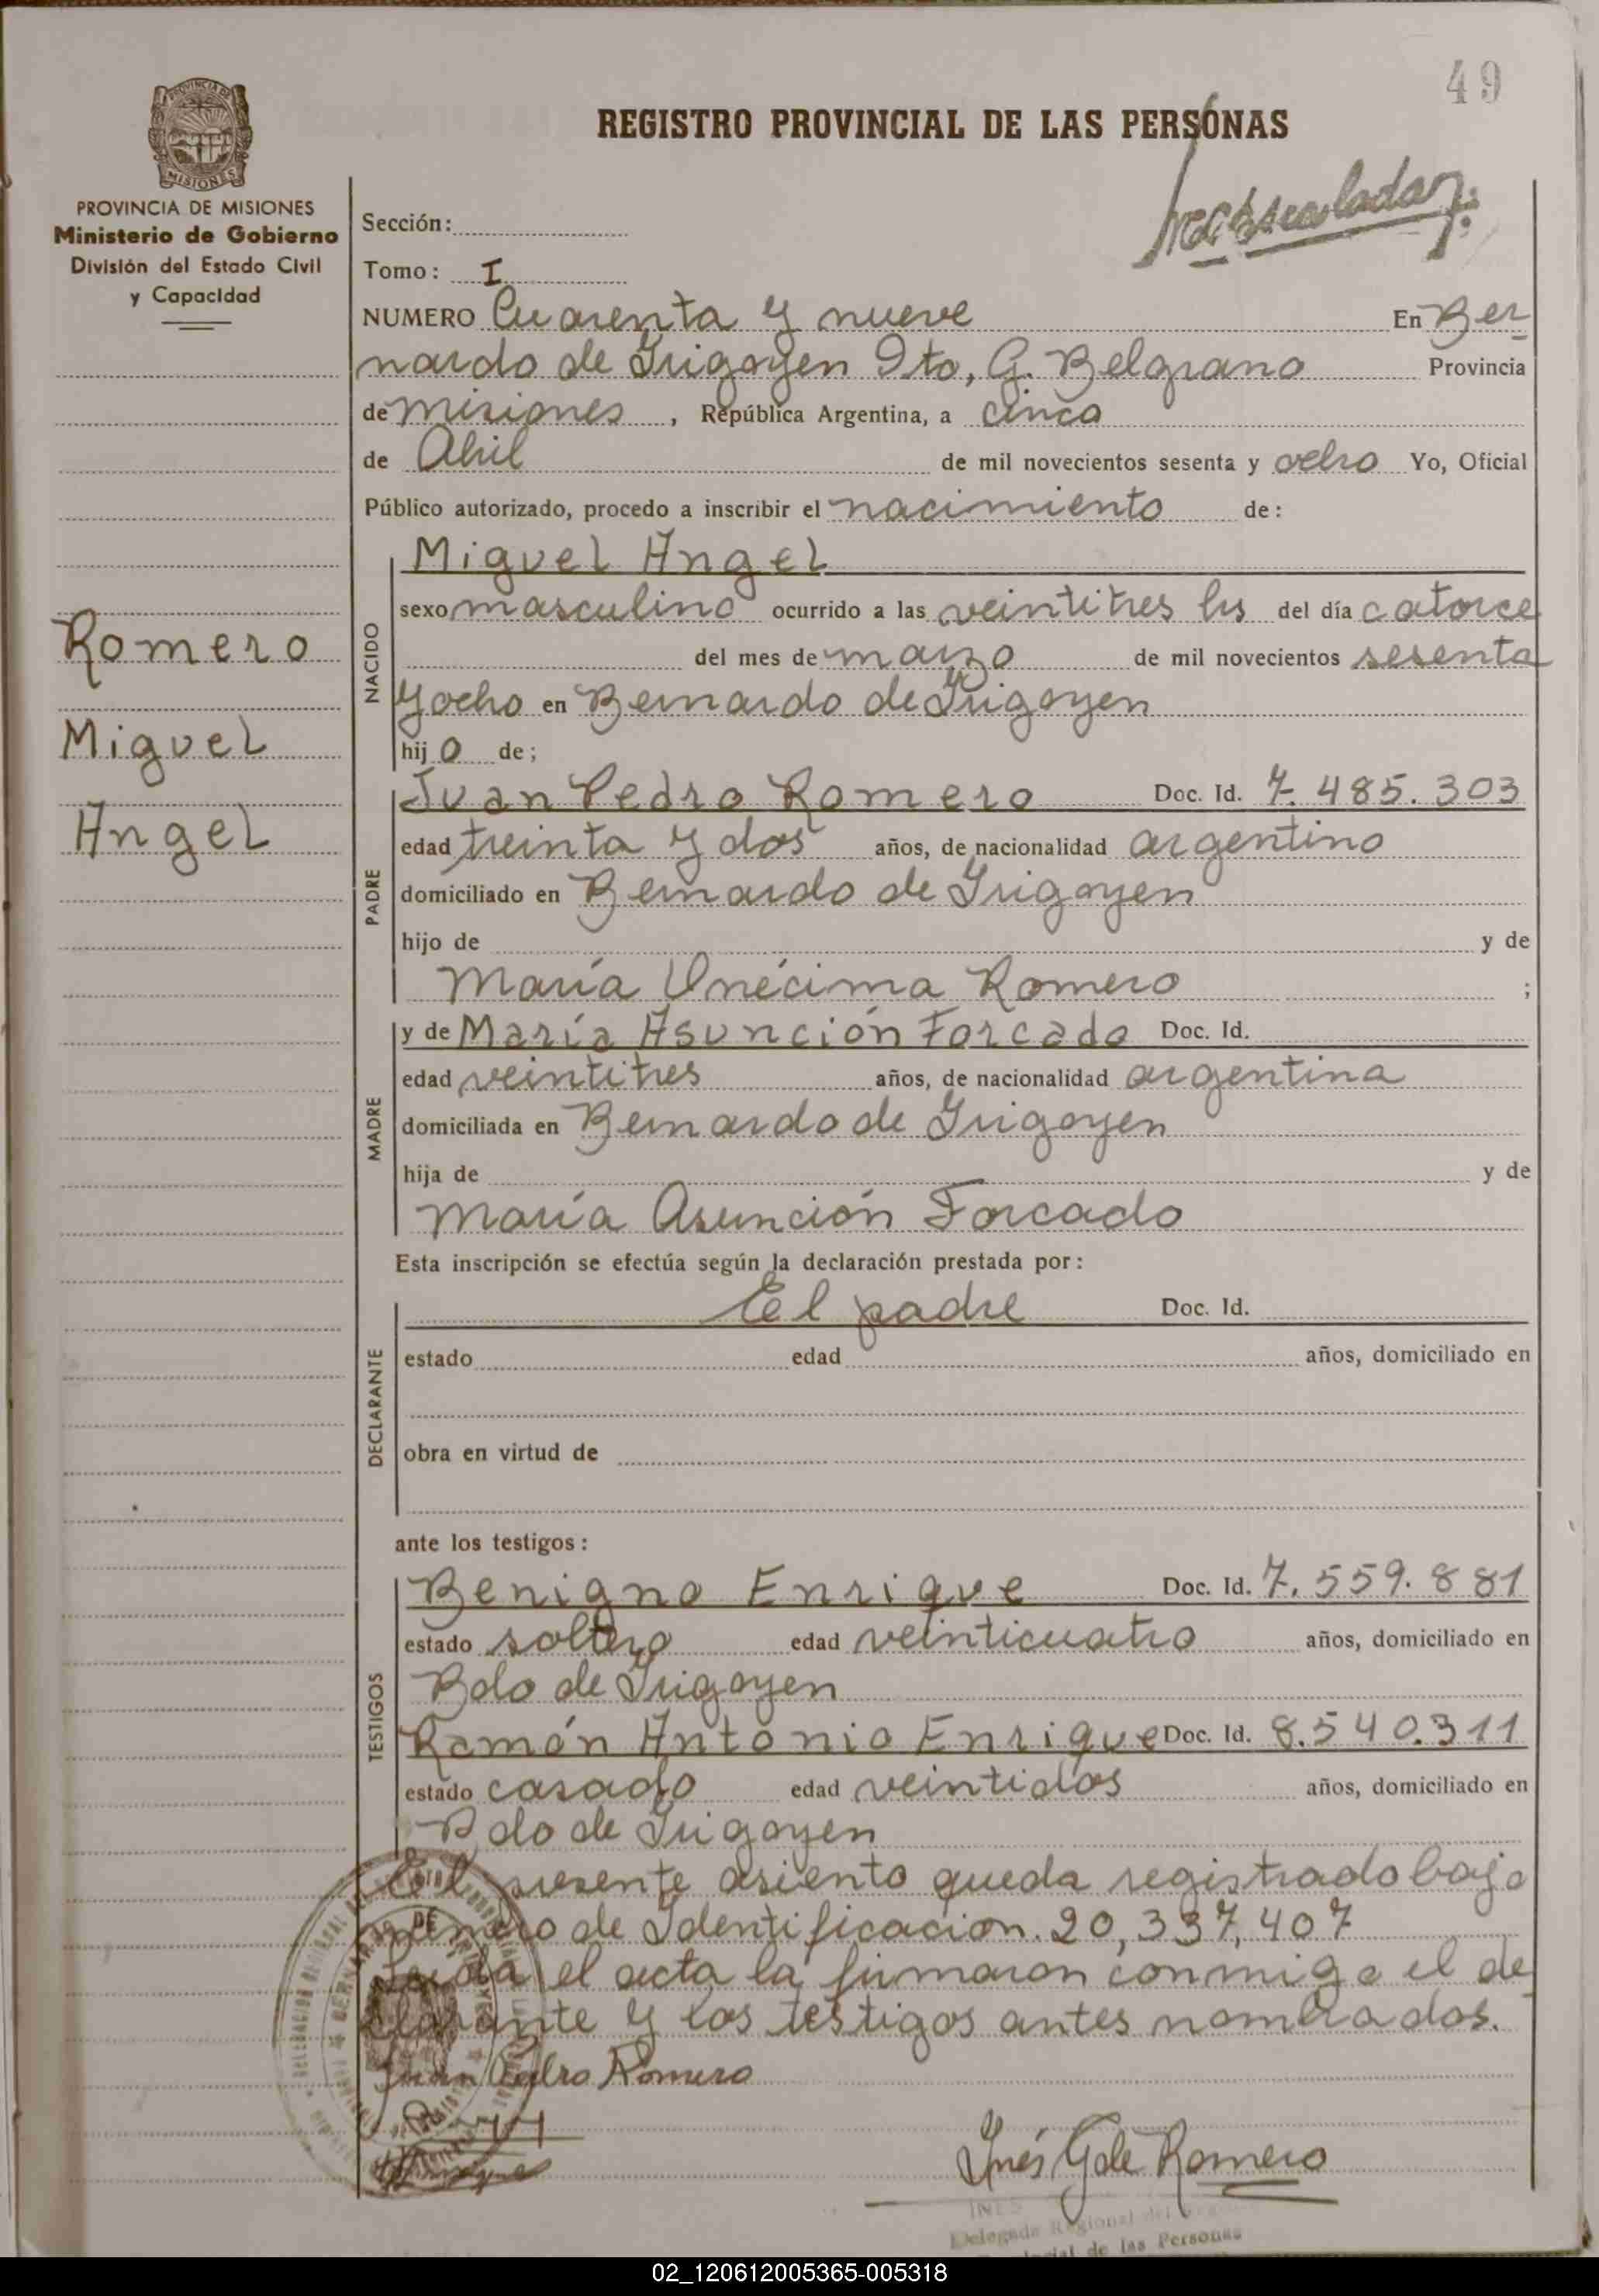 49
REGISTRO PROVINCIAL DE LAS PERSONAS
PROVINCIA DE
MISIONES
PROVINCIA DE MISIONES
Ministerio de Gobierno
División del Estado Civil
y Capacidad
Sección:
Tomo: I
NUMERO Cuarenta y nueve En Ber
nardo de Irigoyen Dto, G. Belgrano Provincia
de misiones, República Argentina, a cinco
de Abril de mil novecientos sesenta y ocho Yo, Oficial
Público autorizado, procedo a inscribir el nacimiento de:
Romero
Miguel
Angel
NACIDO
Miguel Angel
sexo masculino ocurrido a las veintitres hs del día catorce
del mes de marzo de mil novecientos sesenta
y ocho en Bernardo de Irigoyen
hijo de;
PADRE
Juan Pedro Romero Doc. Id. 7.485.303
edad treinta y dos años, de nacionalidad argentino
domiciliado en Bernardo de Irigoyen
hijo de y de
María Onécima Romero ;
MADRE
y de María Asunción Forcado Doc. Id.
edad veintitres años, de nacionalidad argentina
domiciliada en Bernardo de Irigoyen
hija de y de
María Asunción Forcado
Esta inscripción se efectúa según la declaración prestada por:
DECLARANTE
El padre Doc. Id.
estado edad años, domiciliado en
obra en virtud de
ante los testigos:
TESTIGOS
Benigno Enrique Doc. Id. 7.559.881
estado soltero edad veinticuatro años, domiciliado en
Bdo de Irigoyen
Ramón Antonio Enrique Doc. Id. 8.540.311
estado casado edad veintidos años, domiciliado en
Bdo de Irigoyen
El presente asiento queda registrado bajo
número de Identificación. 20,337,407
Leida el acta la firmaron conmigo el de
clarante y los testigos antes nombrados.
Juan Pedro Romero
Inés G de Romero
INES
Delegada Regional del
de las Personas
02_120612005365-005318